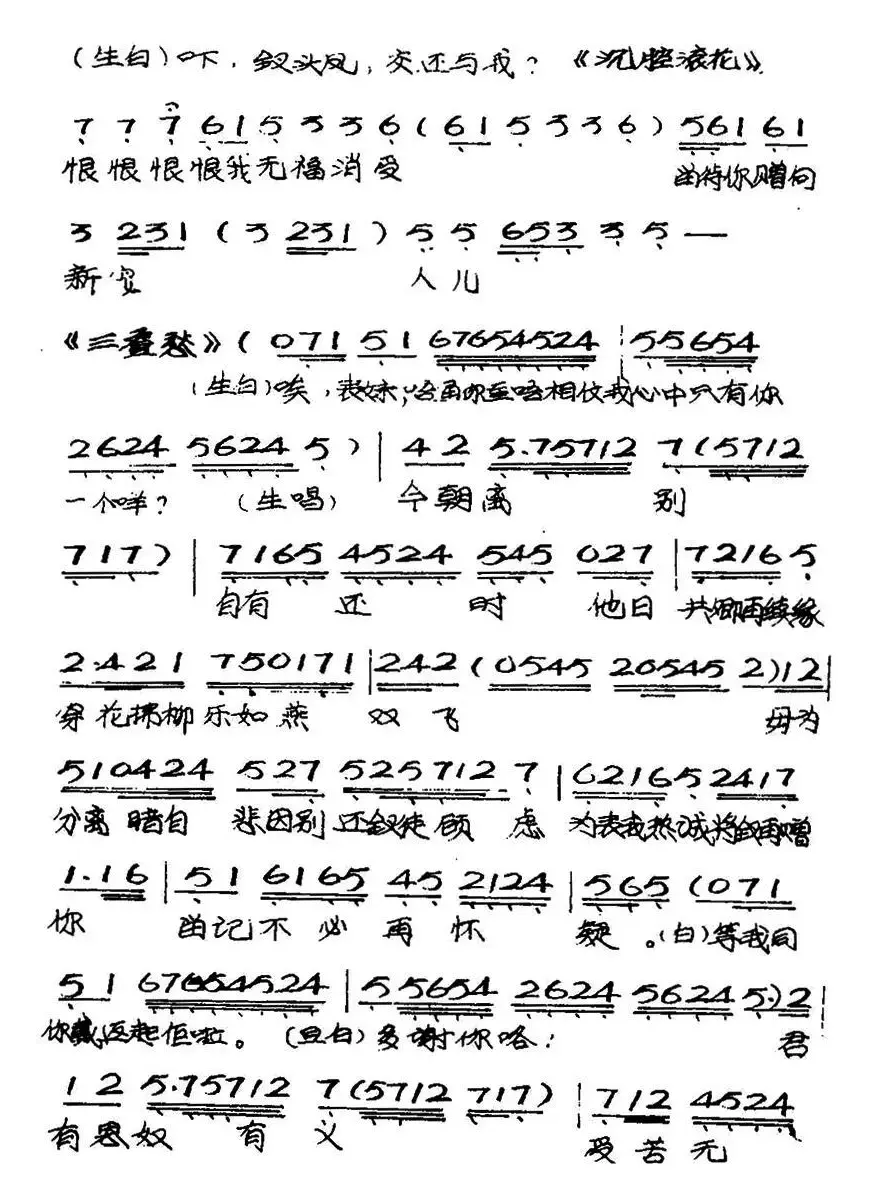 (生白)吓，钗头凤，交还与我？《沉腔滚花》
7 7 7 6 1 5 3 3 6 (6 1 5 3 3 6) 5 6 1 6 1
恨恨恨恨我无福消受 留待你赠向
3 2 3 1 (3 2 3 1) 5 5 6 5 3 3 5 —
新 人儿
《三叠愁》(0 7 1 5 1 6 7 6 5 4 5 2 4 | 5 5 6 5 4
(生白)唉，表妹， 唔相信我心中只有你
2 6 2 4 5 6 2 4 5) | 4 2 5.7 5 7 1 2 7 (5 7 1 2
一个咩？ (生唱) 今朝离 别
7 1 7) | 7 1 6 5 4 5 2 4 5 4 5 0 2 7 | 7 2 1 6 5
自有 还 时 他日 共卿再续缘
2.4 2 1 7 5 0 1 7 1 | 2 4 2 (0 5 4 5 2 0 5 4 5 2) 1 2 |
穿花拂柳乐如燕 双飞 毋为
5 1 0 4 2 4 5 2 7 5 2 5 7 1 2 7 | 0 2 1 6 5 2 4 1 7
分离暗自 悲因别还钗徒顾虑 为表我热诚将钗再赠
1.1 6 | 5 1 6 1 6 5 4 5 2 1 2 4 | 5 6 5 (0 7 1
你 记不必再怀 疑。(白)等我同
5 1 6 7 6 5 4 5 2 4 | 5 5 6 5 4 2 6 2 4 5 6 2 4 5.) 2 |
你戴返起佢啦。 (旦白)多谢你咯！ 君
1 2 5.7 5 7 1 2 7 (5 7 1 2 7 1 7) | 7 1 2 4 5 2 4
有恩奴 有 义 受苦无